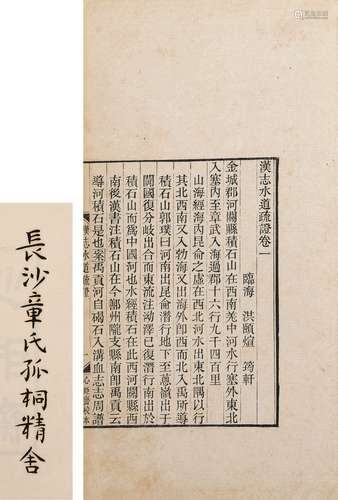 漢志水道疏證卷一
臨海　洪頤煊　筠軒
金城郡河關縣積石山在西南羌中河水行塞外東北
入塞內至章武入海過郡十六行九千四百里
山海經海內昆侖之虛在西北河水出東北隅以行
其北西南又入勃海又出海外卽西而北入禹所導
積石山郭璞曰河南出昆侖潛行地下至蔥嶺出于
闐國復分岐出合而東流注泑澤已復潛行南出於
積石山而爲中國河也水經積石在此西河關縣西
南後漢書注積石山在今鄯州龍支縣南卽禹貢云
導河積石是也案禹貢河自碣石入
漢志水道疏證
一
心矩齋校本
長沙章氏孤桐精舍